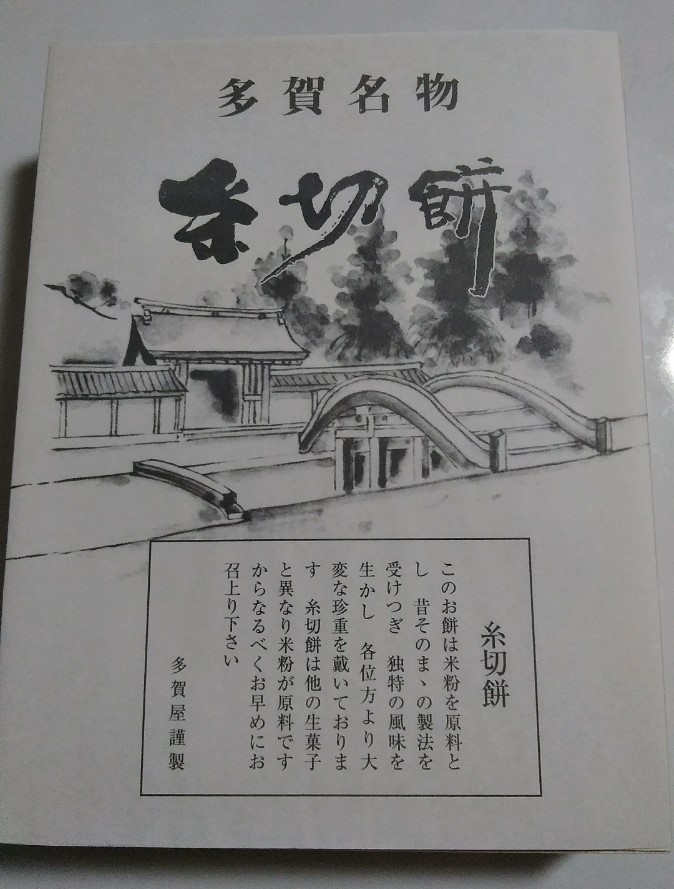 多賀名物
糸切餅
糸切餅
このお餅は米粉を原料と
し　昔そのまゝの製法を
受けつぎ　独特の風味を
生かし　各位方より大
変な珍重を戴いておりま
す　糸切餅は他の生菓子
と異なり米粉が原料です
からなるべくお早めにお
召上り下さい
多賀屋謹製